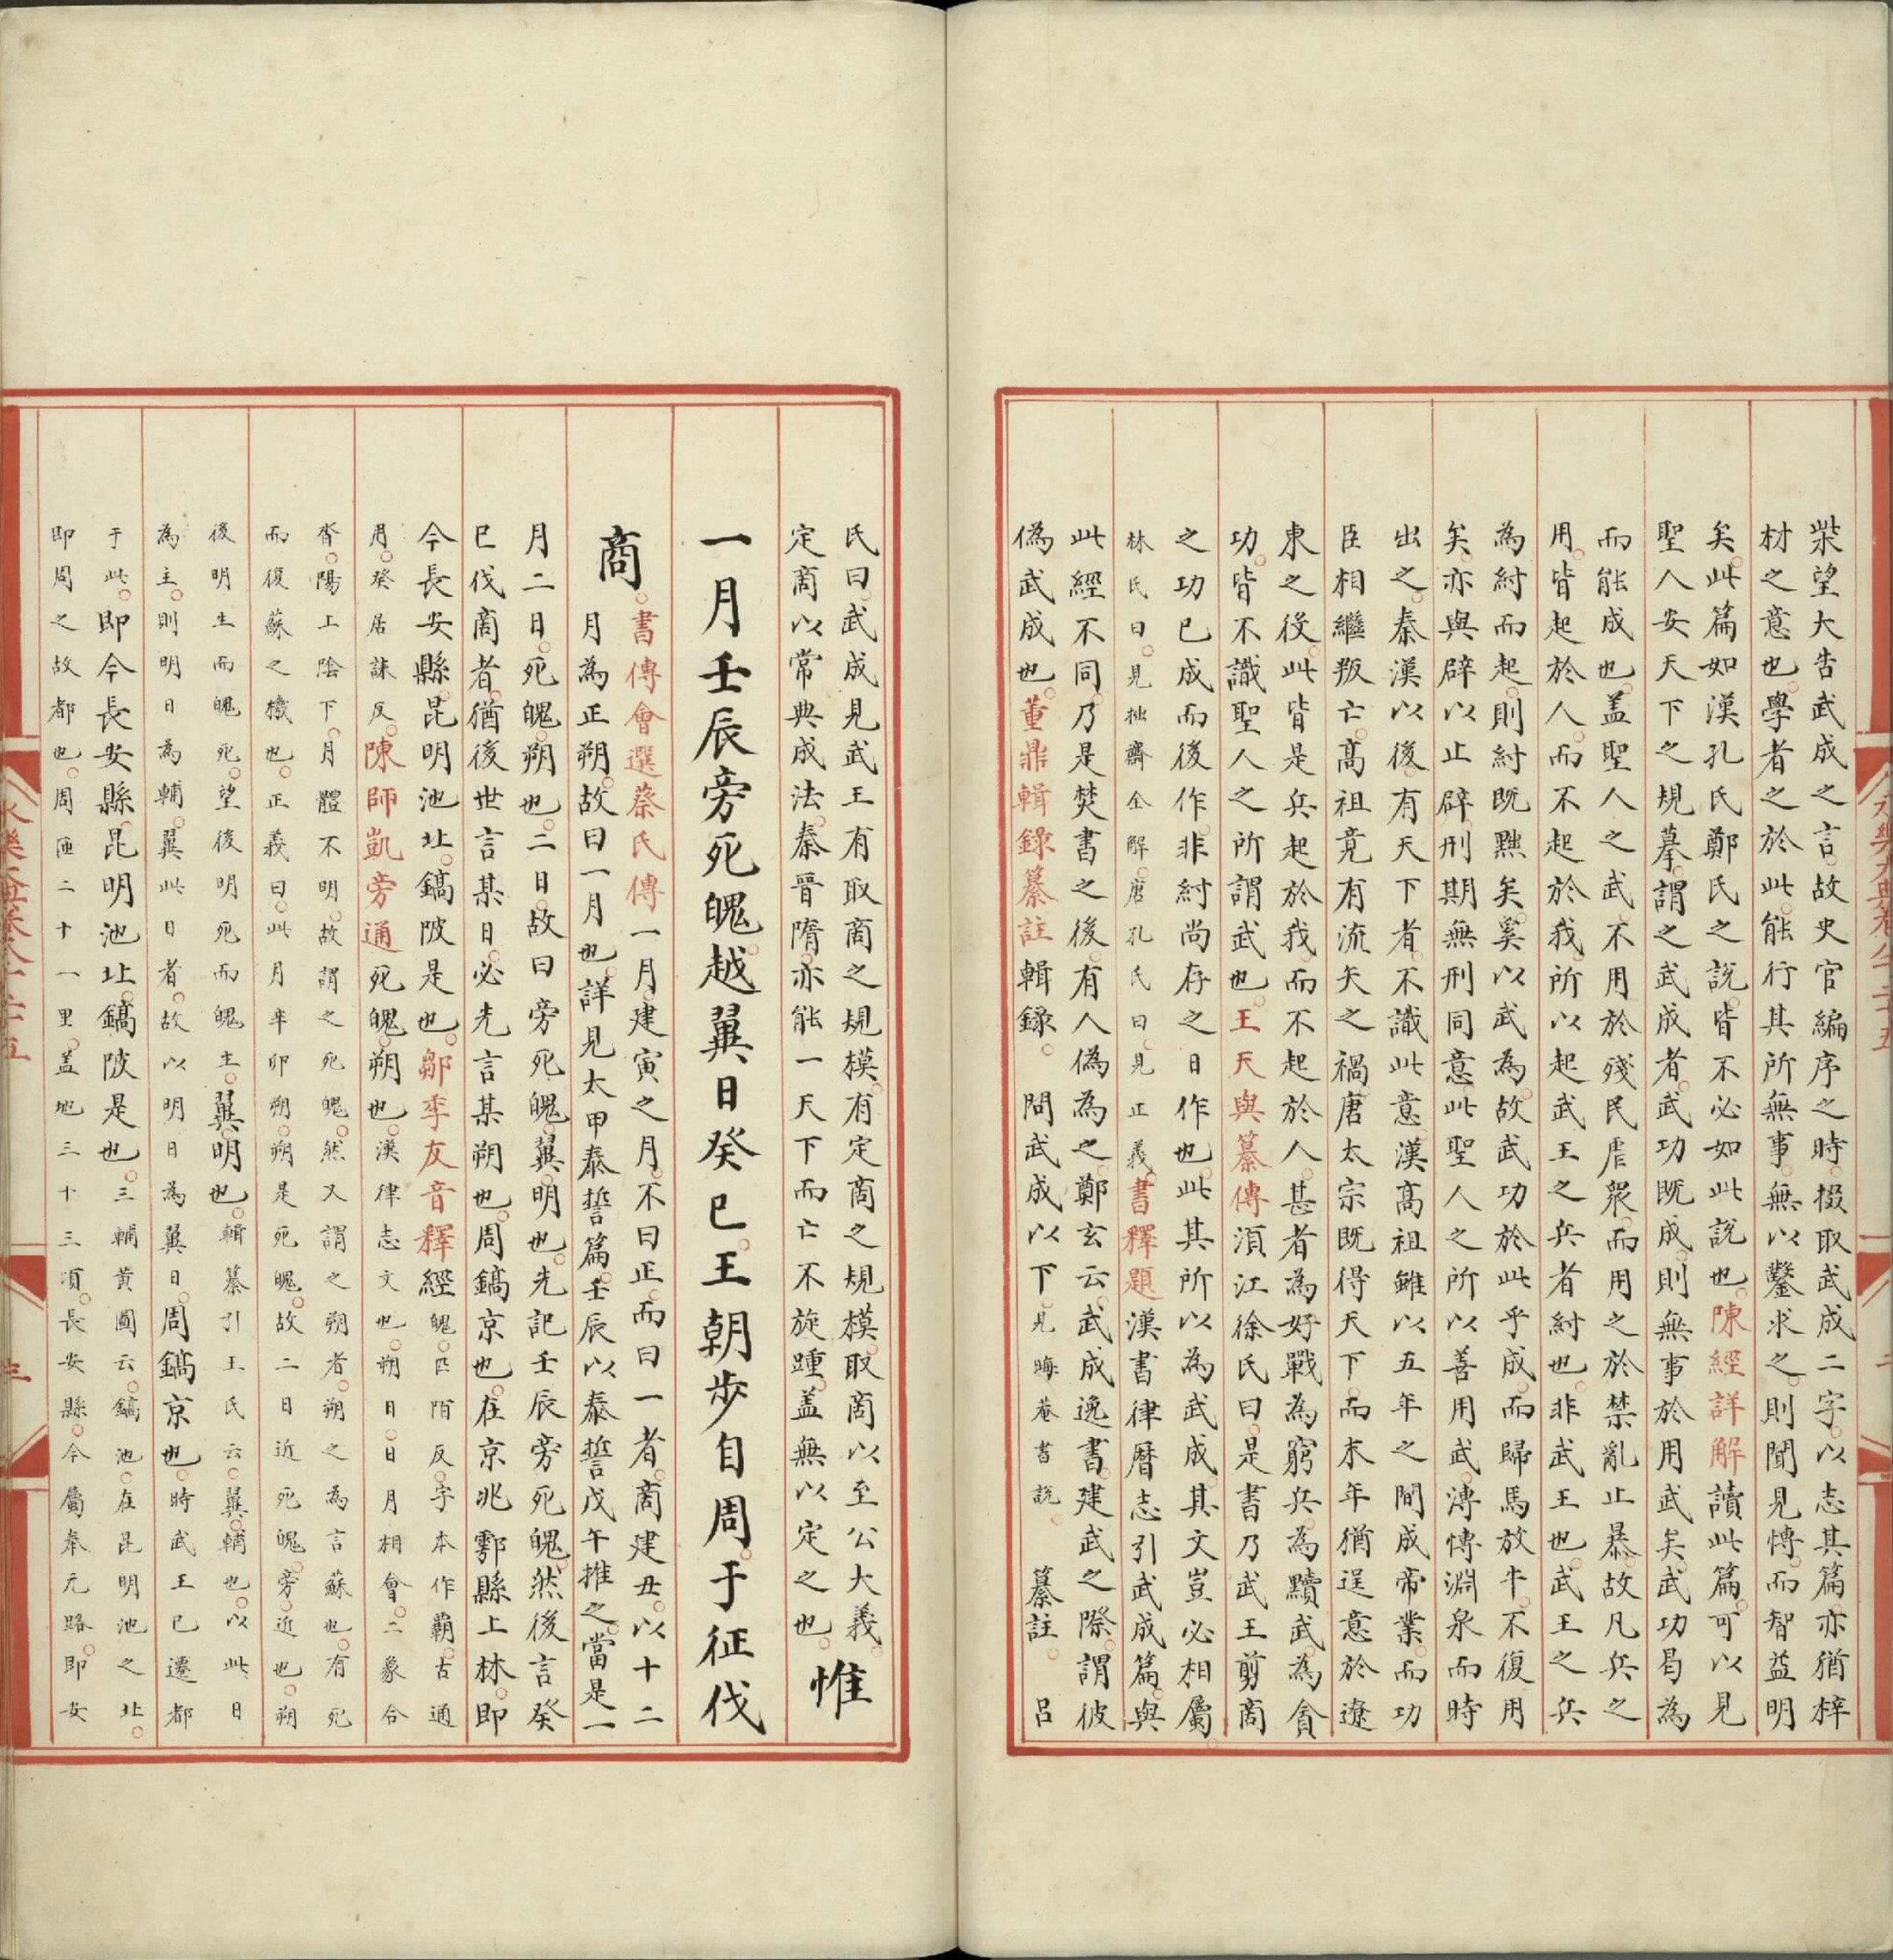 柴望大告武成之言故史官編序之時掇取武成二字以志其篇亦猶梓
材之意也學者之於此能行其所無事無以鑿求之則聞見慱而智益明
矣此篇如漢孔氏鄭氏之說皆不必如此說也陳經詳解讀此篇可以見
聖人安天下之規摹謂之武成者武功既成則無事於用武矣武功曷為
而能成也盖聖人之武不用於殘民虐衆而用之於禁亂止暴故凡兵之
用皆起於人而不起於我所以起武王之兵者紂也非武王也武王之兵
為紂而起則紂既黜矣奚以武為故武功於此乎成而歸馬放牛不復用
矣亦與辟以止辟刑期無刑同意此聖人之所以善用武溥慱淵泉而時
出之秦漢以後有天下者不識此意漢髙祖雖以五年之間成帝業而功
臣相繼叛亡髙祖竟有流矢之禍唐太宗既得天下而末年猶逞意於遼
東之役此皆是兵起於我而不起於人甚者為好戰為窮兵為黷武為貪
功皆不識聖人之所謂武也王天與纂傳湏江徐氏曰是書乃武王剪商
之功已成而後作非紂尚存之日作也此其所以為武成其文豈必相屬
林氏曰見拙齋全解唐孔氏曰見正義書釋題漢書律曆志引武成篇與
此經不同乃是焚書之後有人偽為之鄭玄云武成逸書建武之際謂彼
偽武成也董鼎輯錄纂註輯錄 問武成以下見晦菴書說 纂註 吕
氏曰武成見武王有取商之規模有定商之規模取商以至公大義
定商以常典成法秦晉隋亦能一天下而亡不旋踵盖無以定之也惟
一月壬辰旁死魄越翼日癸巳王朝步自周于征伐
商書傳會選蔡氏傳一月建寅之月不曰正而曰一者商建丑以十二
月為正朔故曰一月也詳見太甲泰誓篇壬辰以泰誓戊午推之當是一
月二日死魄朔也二日故曰旁死魄翼明也先記壬辰旁死魄然後言癸
巳伐商者猶後世言某日必先言某朔也周鎬京也在京兆鄠縣上林即
今長安縣昆明池北鎬陂是也鄒季友音釋經魄匹陌反字本作霸古通
用癸居誄反陳師凱旁通死魄朔也漢律志文也朔日日月相會二象合
沓陽上隂下月體不明故謂之死魄然又謂之朔者朔之為言蘇也有死
而復蘇之機也正義曰此月辛卯朔朔是死魄故二日近死魄旁近也朔
後明生而魄死望後明死而魄生翼明也輯纂引王氏云翼輔也以此日
為主則明日為輔翼此日者故以明日為翼日周鎬京也時武王已遷都
于此即今長安縣昆明池北鎬陂是也三輔黄圖云鎬池在昆明池之北
即周之故都也周匝二十一里盖地三十三頃長安縣今屬奉元路即安